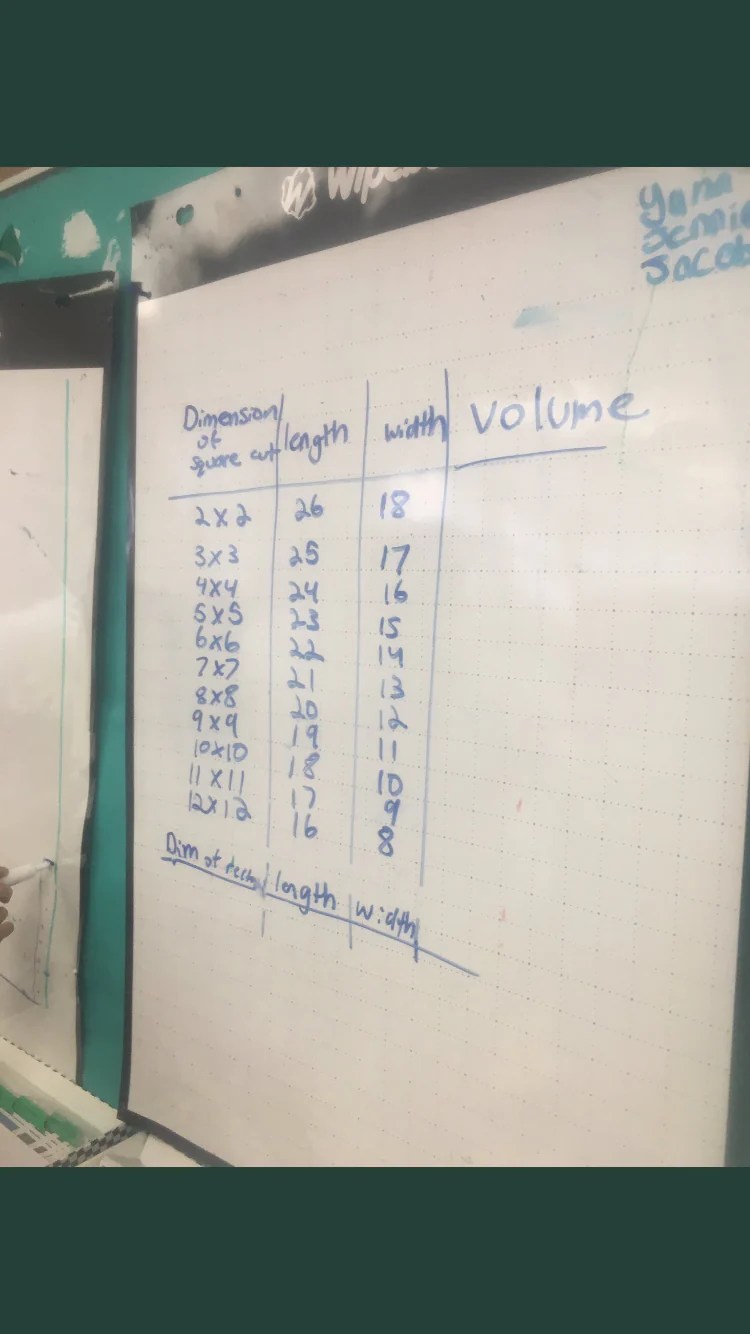 Yana
Jacob
Dimension of square cut length width volume
2x2 26 18
3x3 25 17
4x4 24 16
5x5 23 15
6x6 22 14
7x7 21 13
8x8 20 12
9x9 19 11
10x10 18 10
11x11 17 9
12x12 16 8
Dim of length width